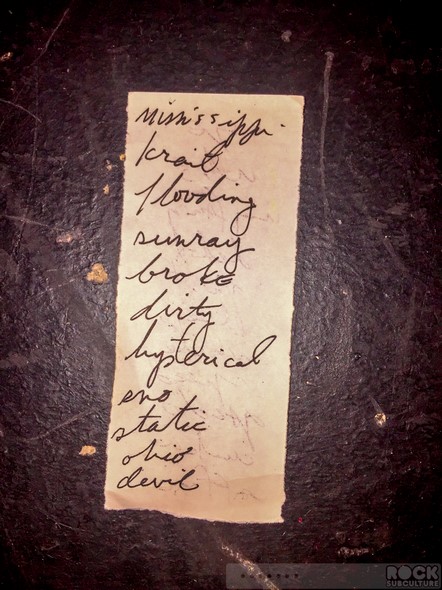 Mississippi
krait
flooding
sunray
broke
dirty
hysterical
eno
static
ohio
devil
ROCK
SUBCULTURE